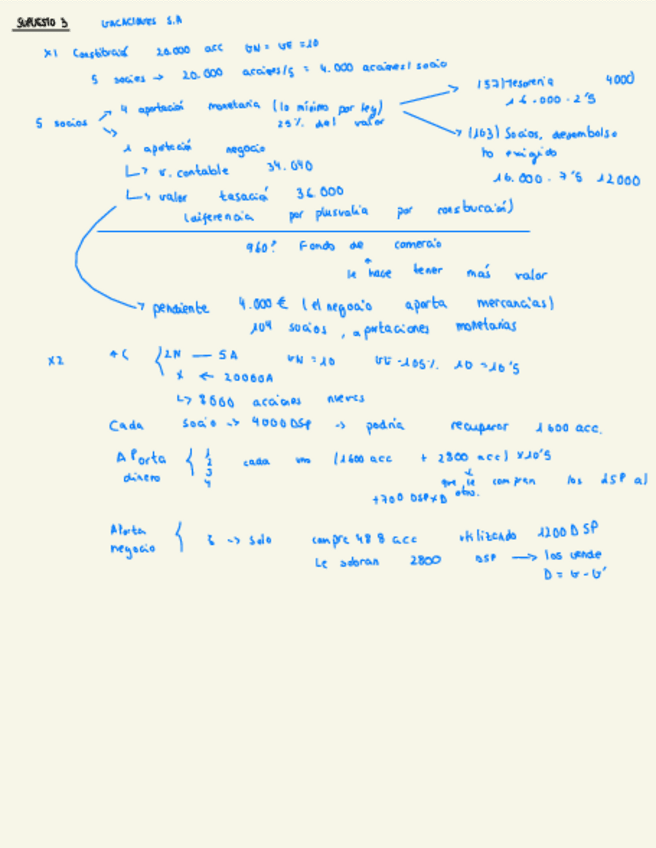 SUPUESTO 3 VACACIONES S.A
X1 Constitución 20.000 acc VN = VE = 10
5 socios → 20.000 acciones/5 = 4.000 acciones/socio
5 socios
4 aportación monetaria (lo mínimo por ley)
25% del valor
(57) Tesorería 4000)
16.000 · 2'5
(103) Socios, desembolso
no exigido
16.000 · 7'5 12000
1 aportación negocio
↳ v. contable 34.040
↳ valor tasación 36.000
(diferencia por plusvalía por construcción)
960? Fondo de comercio
le hace tener más valor
→ pendiente 4.000 € (el negocio aporta mercancías)
104 socios, aportaciones monetarias
X2 AC { 2N — 5A VN = 10 VE = 105% 10 = 10'5
X ← 20000A
↳ 8000 acciones nuevas
Cada socio → 4000 DSP → podría recuperar 1600 acc.
Aporta dinero { 1 2 3 4 cada uno (1600 acc + 2800 acc) x 10'5
que le compran los DSP al
otro.
+700 DSP x D
Aporta negocio { 5 → Solo compre 488 acc utilizando 1200 DSP
Le sobran 2800 DSP → los vende
D = V - V'